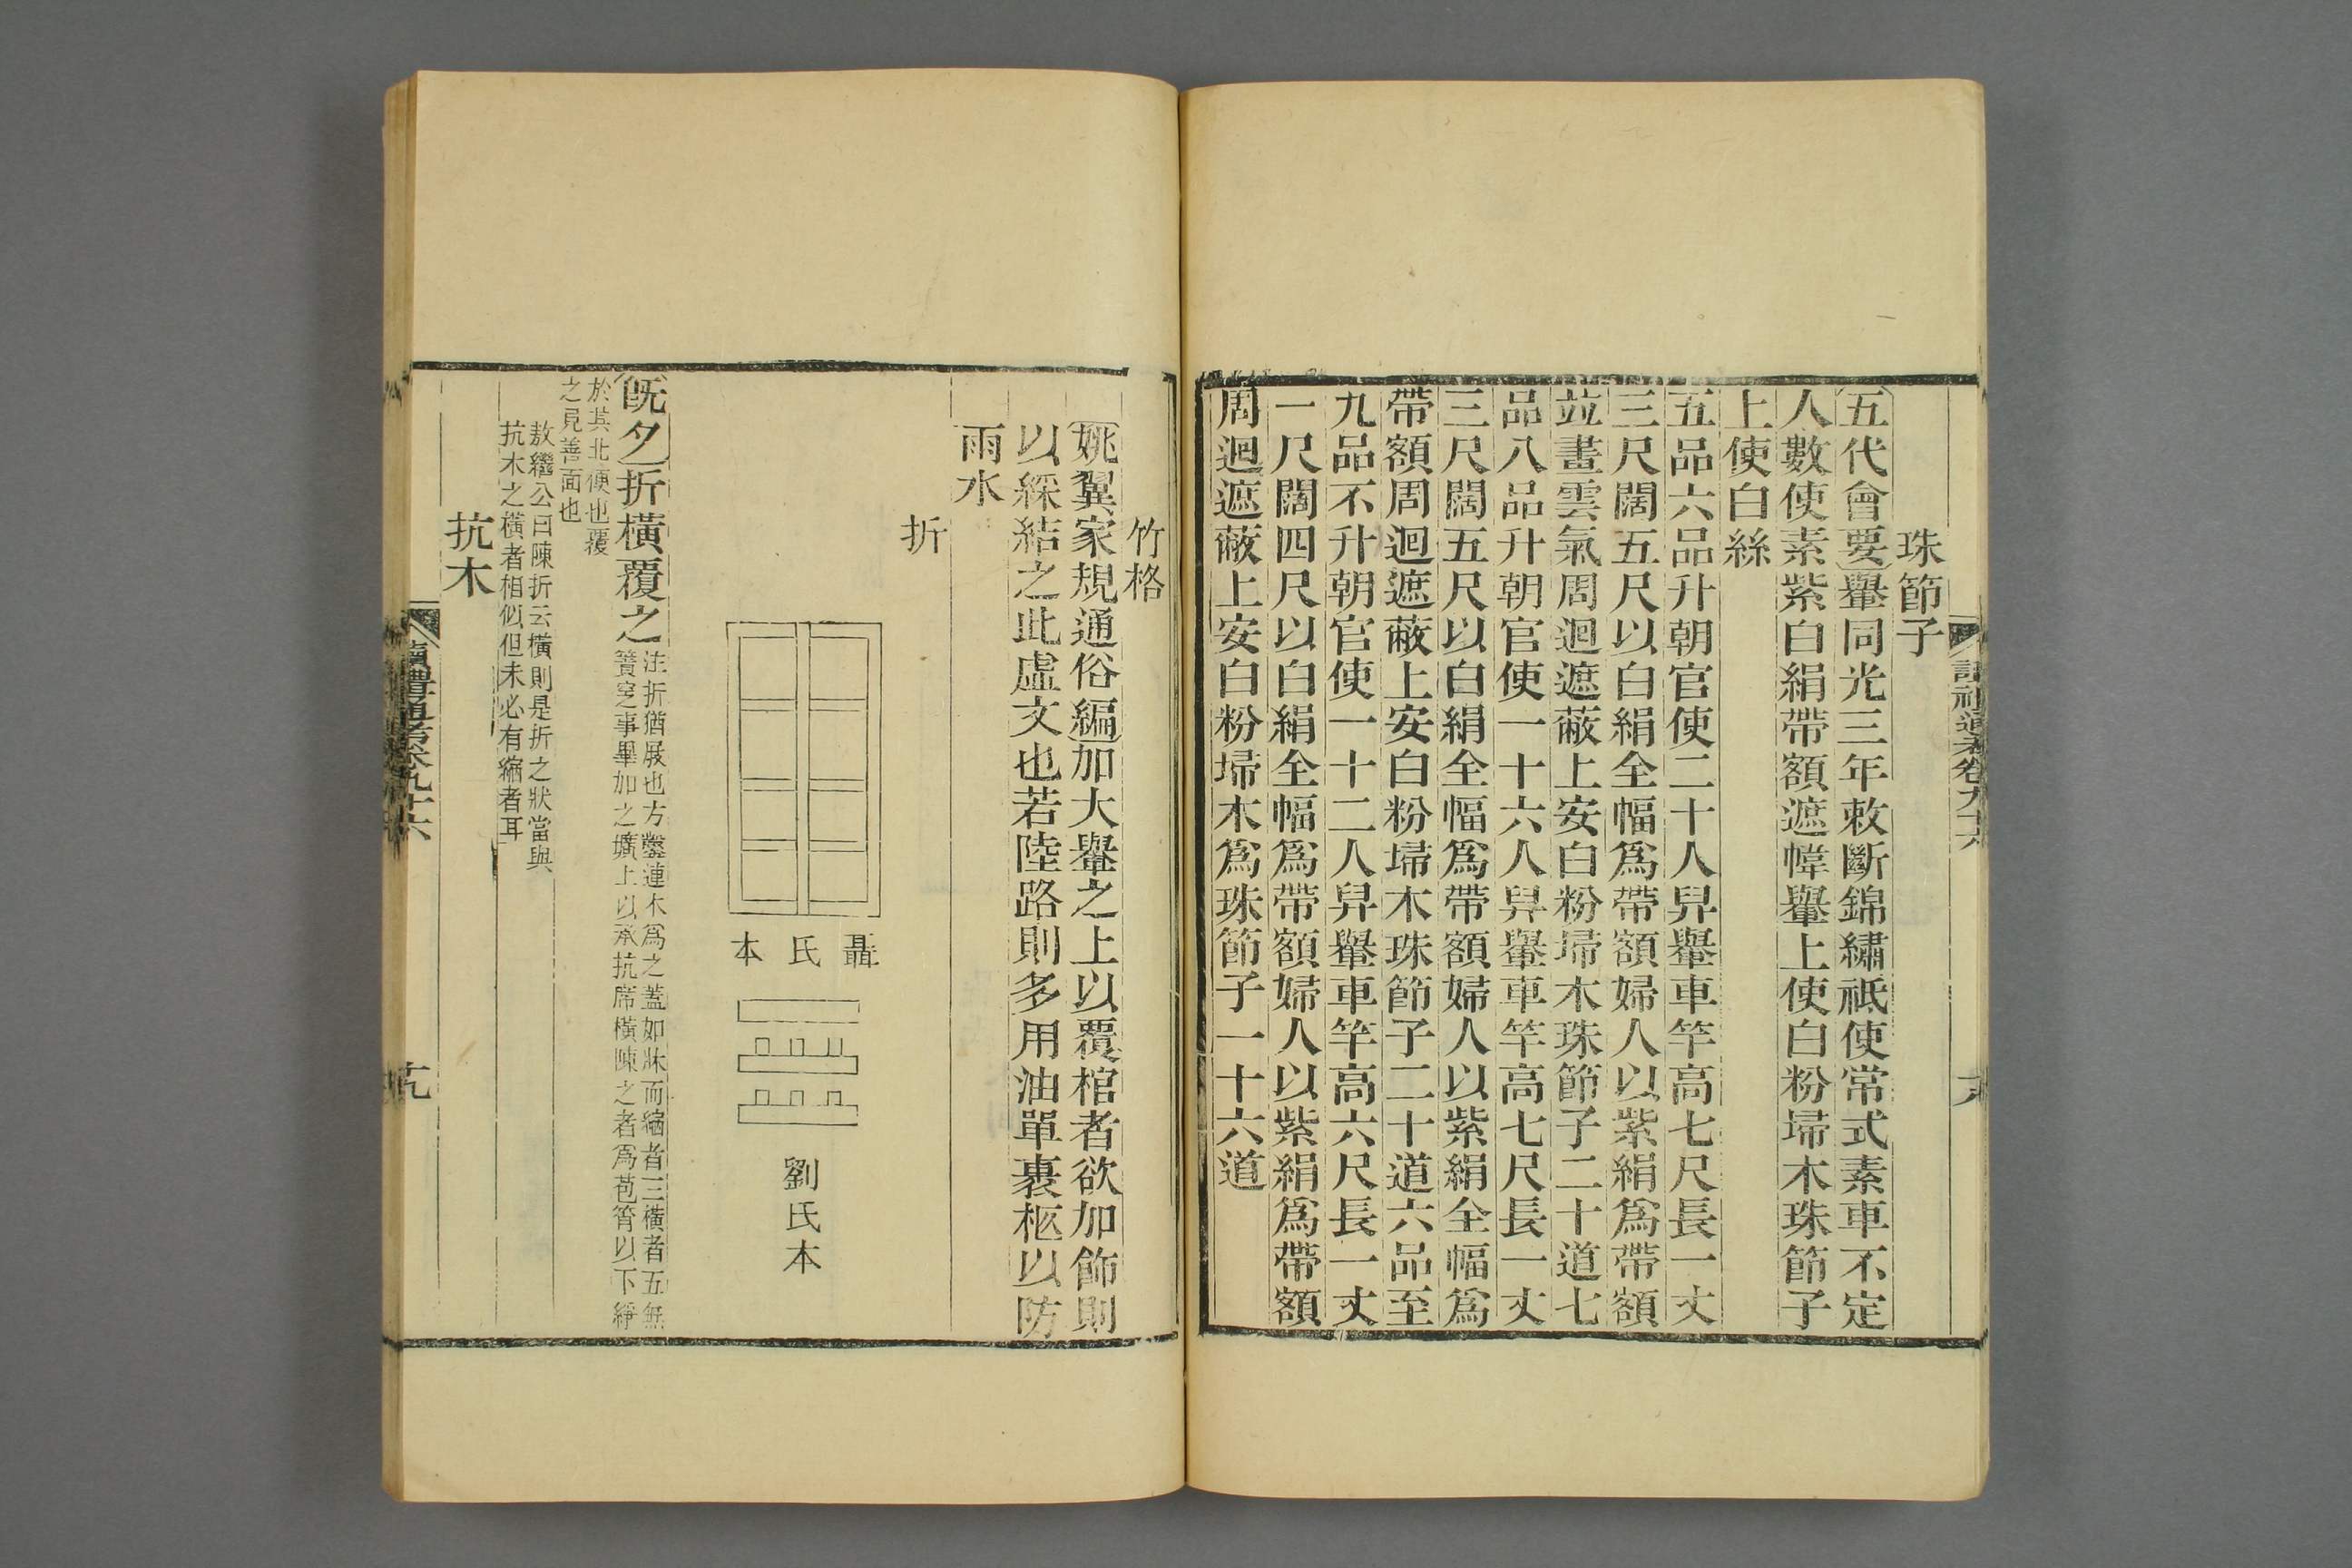 珠節子
五代會要轝同光三年敕斷錦繡祗使常式素車不定
人數使素紫白絹帶額遮幃轝上使白粉埽木珠節子
上使白絲
五品六品升朝官使二十人舁轝車竿高七尺長一丈
三尺闊五尺以白絹全幅爲帶額婦人以紫絹爲帶額
竝畫雲氣周迴遮蔽上安白粉埽木珠節子二十道七
品八品升朝官使一十六人舁轝車竿高七尺長一丈
三尺闊五尺以白絹全幅爲帶額婦人以紫絹全幅爲
帶額周迴遮蔽上安白粉埽木珠節子二十道六品至
九品不升朝官使一十二人舁轝車竿高六尺長一丈
一尺闊四尺以白絹全幅爲帶額婦人以紫絹爲帶額
周迴遮蔽上安白粉埽木爲珠節子一十六道
竹格
姚翼家規通俗編加大轝之上以覆棺者欲加飾則
以綵結之此虛文也若陸路則多用油單裹柩以防
雨水
折
聶氏本
劉氏本
旣夕折橫覆之
注折猶庪也方鑿連木爲之蓋如牀而縮者三橫者五無
簀窆事畢加之壙上以承抗席橫陳之者爲苞筲以下綪
於其北便也覆
之見善面也
敖繼公曰陳折云橫則是折之狀當與
抗木之橫者相似但未必有縮者耳
抗木
讀禮通考卷九十六